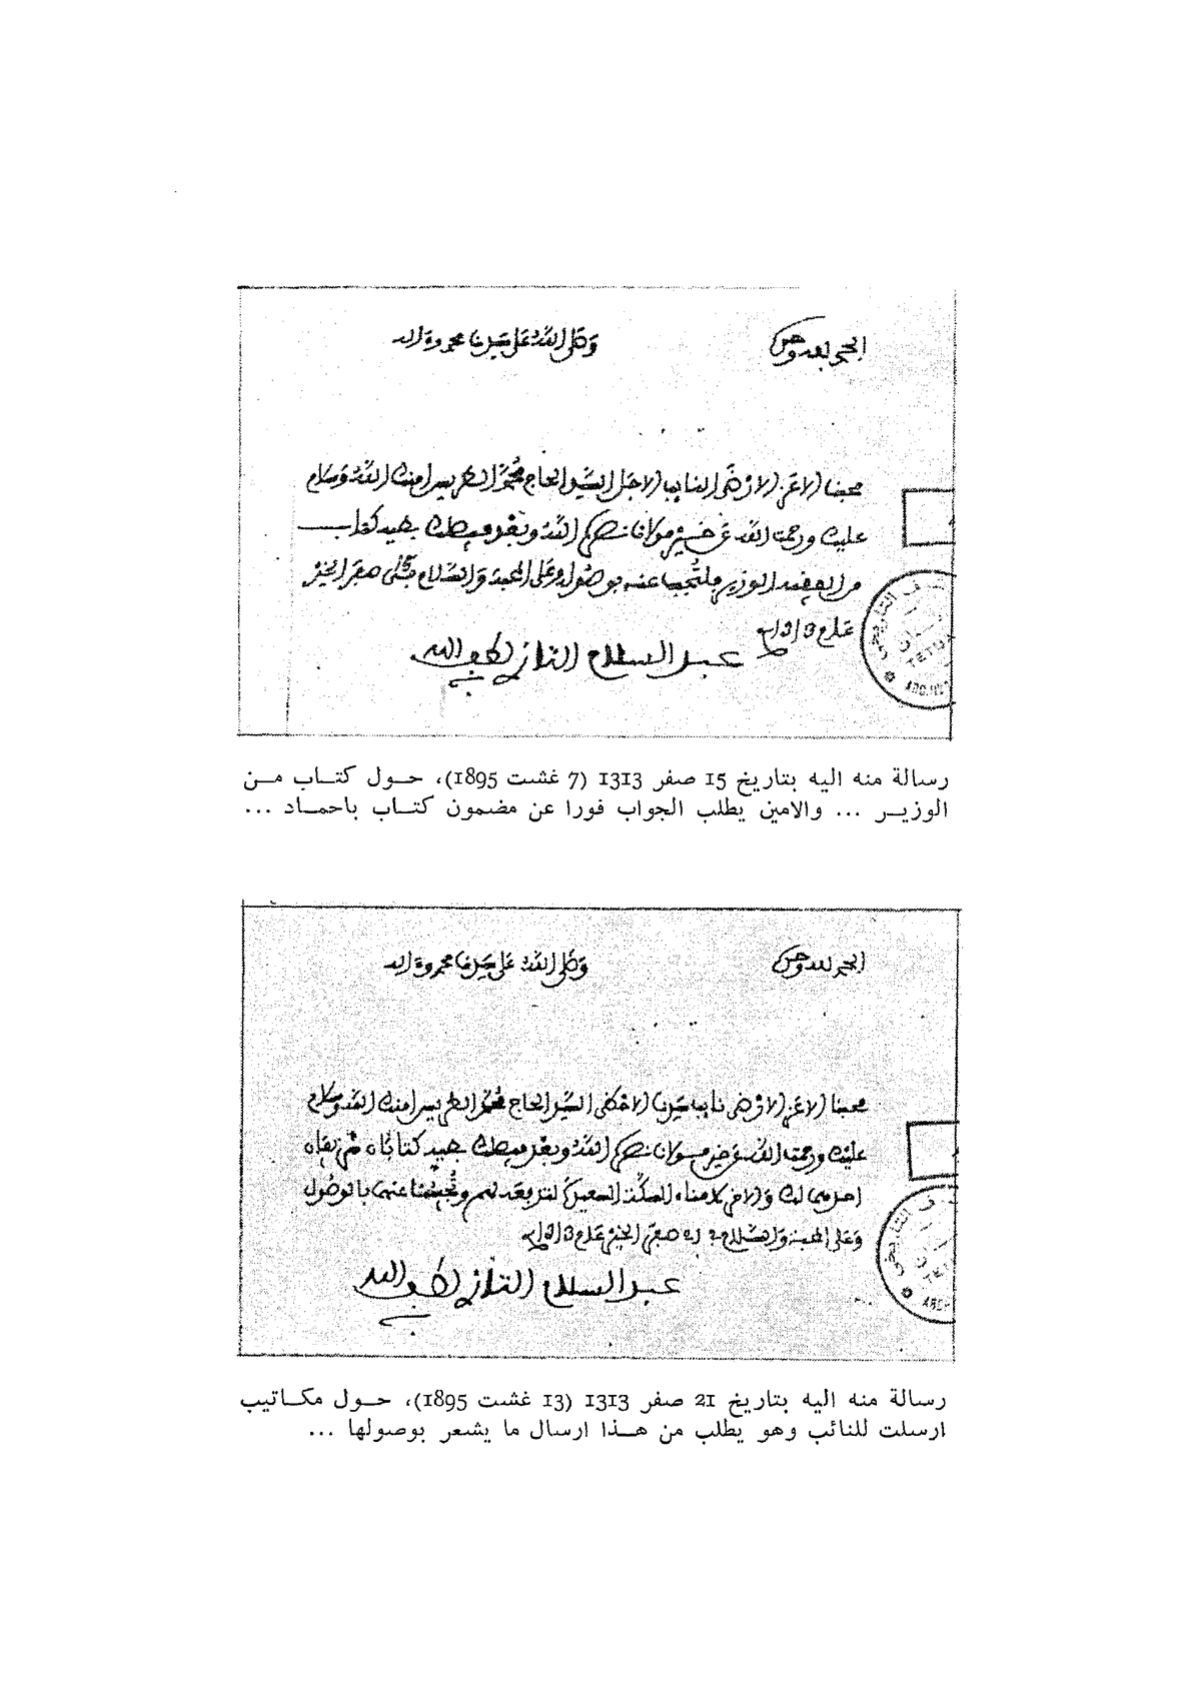 الحمد لله وحده
وصلى الله على سيدنا محمد وءاله
محبنا الاعز الارضى النايب الاجل السيد الحاج محمد الطريس امنك الله وسلام
عليك ورحمت الله عن خير مولانا نصره الله وبعد فيصلك كتاب
من الفقيه الوزير فلتجبنا عنه بوصوله وعلى المحبة والسلام في صفر الخير
عام 1313
عبد السلام التازي لطف الله به
رسالة منه اليه بتاريخ 15 صفر 1313 (7 غشت 1895)، حول كتاب من
الوزير ... والامين يطلب الجواب فورا عن مضمون كتاب باحماد ...
الحمد لله وحده
وصلى الله على سيدنا محمد وءاله
محبنا الاعز الارضى نايب سيدنا الاحظى السيد الحاج محمد الطريس امنك الله وسلام
عليك ورحمت الله عن خير مولانا نصره الله وبعد فيصلك كتابان
احدهما لك والاخر لامناء لتدفعه لهم وتجيبنا عنهما بالوصول
وعلى المحبة والسلام في 21 صفر الخير عام 1313
عبد السلام التازي لطف الله به
رسالة منه اليه بتاريخ 21 صفر 1313 (13 غشت 1895)، حول مكاتيب
ارسلت للنائب وهو يطلب من هذا ارسال ما يشعر بوصولها ...